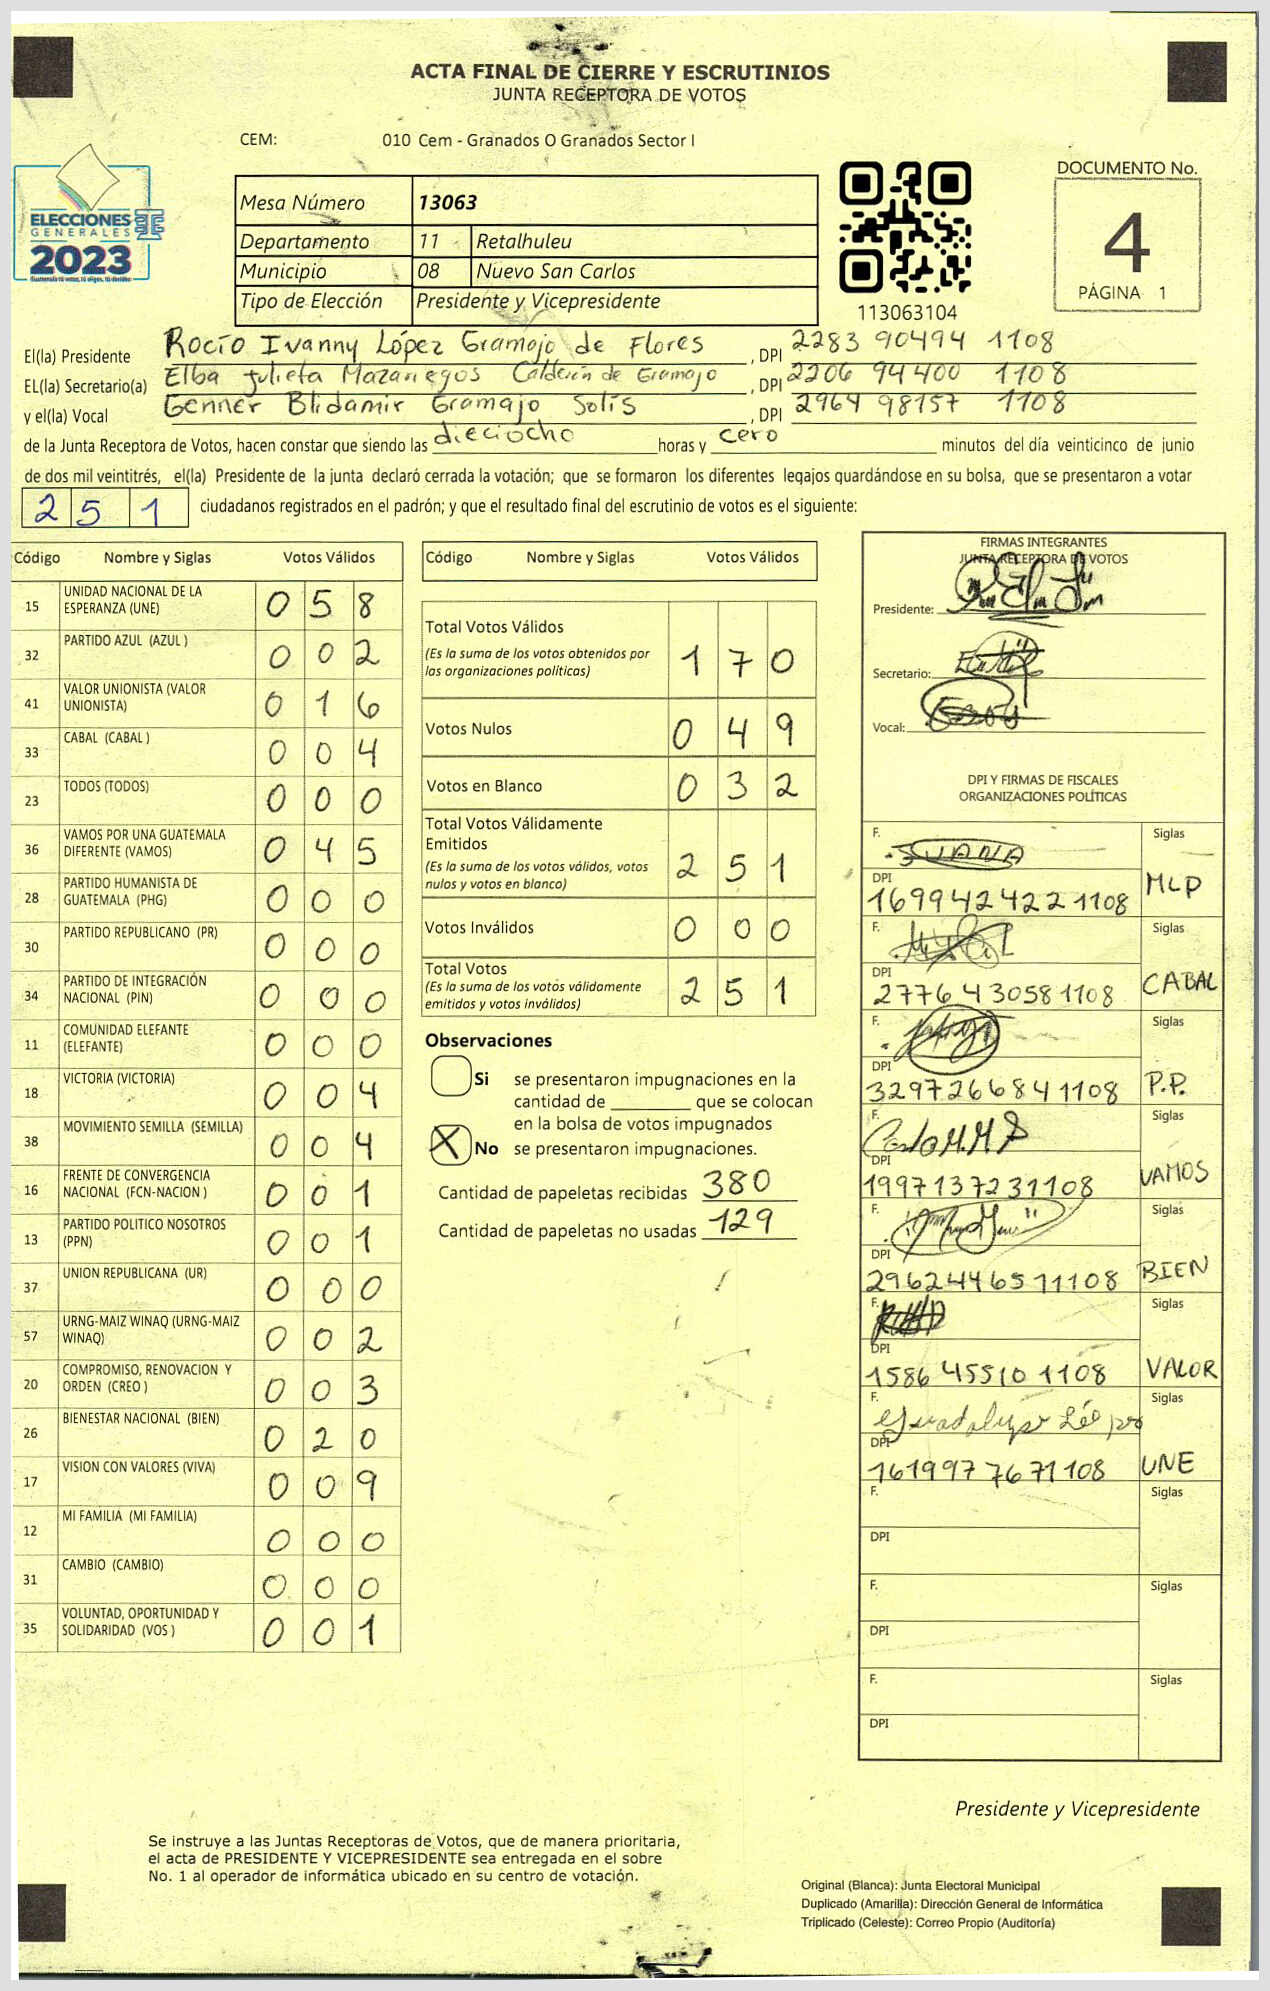 ACTA FINAL DE CIERRE Y ESCRUTINIOS
JUNTA RECEPTORA DE VOTOS
CEM: 010 Cem - Granados O Granados Sector I
ELECCIONES
GENERALES
2023
Mesa Número 13063
Departamento 11 Retalhuleu
Municipio 08 Nuevo San Carlos
Tipo de Elección Presidente y Vicepresidente
113063104
DOCUMENTO No.
4
PÁGINA 1
El(la) Presidente Rocío Ivanny López Gramajo de Flores , DPI 2283 90494 1108
EL(la) Secretario(a) Elba Julieta Mazariegos Calderón de Gramajo , DPI 2206 94400 1108
y el(la) Vocal Genner Blidamir Gramajo Solís , DPI 2964 98157 1108
de la Junta Receptora de Votos, hacen constar que siendo las dieciocho horas y cero minutos del día veinticinco de junio
de dos mil veintitrés, el(la) Presidente de la junta declaró cerrada la votación; que se formaron los diferentes legajos guardándose en su bolsa, que se presentaron a votar
251 ciudadanos registrados en el padrón; y que el resultado final del escrutinio de votos es el siguiente:
Código Nombre y Siglas Votos Válidos
15 UNIDAD NACIONAL DE LA ESPERANZA (UNE) 0 5 8
32 PARTIDO AZUL (AZUL ) 0 0 2
41 VALOR UNIONISTA (VALOR UNIONISTA) 0 1 6
33 CABAL (CABAL ) 0 0 4
23 TODOS (TODOS) 0 0 0
36 VAMOS POR UNA GUATEMALA DIFERENTE (VAMOS) 0 4 5
28 PARTIDO HUMANISTA DE GUATEMALA (PHG) 0 0 0
30 PARTIDO REPUBLICANO (PR) 0 0 0
34 PARTIDO DE INTEGRACIÓN NACIONAL (PIN) 0 0 0
11 COMUNIDAD ELEFANTE (ELEFANTE) 0 0 0
18 VICTORIA (VICTORIA) 0 0 4
38 MOVIMIENTO SEMILLA (SEMILLA) 0 0 4
16 FRENTE DE CONVERGENCIA NACIONAL (FCN-NACION ) 0 0 1
13 PARTIDO POLITICO NOSOTROS (PPN) 0 0 1
37 UNION REPUBLICANA (UR) 0 0 0
57 URNG-MAIZ WINAQ (URNG-MAIZ WINAQ) 0 0 2
20 COMPROMISO, RENOVACION Y ORDEN (CREO ) 0 0 3
26 BIENESTAR NACIONAL (BIEN) 0 2 0
17 VISION CON VALORES (VIVA) 0 0 9
12 MI FAMILIA (MI FAMILIA) 0 0 0
31 CAMBIO (CAMBIO) 0 0 0
35 VOLUNTAD, OPORTUNIDAD Y SOLIDARIDAD (VOS ) 0 0 1
Código Nombre y Siglas Votos Válidos
Total Votos Válidos 1 7 0
(Es la suma de los votos obtenidos por
las organizaciones políticas)
Votos Nulos 0 4 9
Votos en Blanco 0 3 2
Total Votos Válidamente
Emitidos 2 5 1
(Es la suma de los votos válidos, votos
nulos y votos en blanco)
Votos Inválidos 0 0 0
Total Votos 2 5 1
(Es la suma de los votos válidamente
emitidos y votos inválidos)
Observaciones
Si se presentaron impugnaciones en la
cantidad de ________ que se colocan
en la bolsa de votos impugnados
X No se presentaron impugnaciones.
Cantidad de papeletas recibidas 380
Cantidad de papeletas no usadas 129
FIRMAS INTEGRANTES
JUNTA RECEPTORA DE VOTOS
Presidente:
Secretario:
Vocal:
DPI Y FIRMAS DE FISCALES
ORGANIZACIONES POLÍTICAS
F. JUANA Siglas
DPI 1699424221108 MLP
F. Siglas
DPI 2776430581108 CABAL
F. Siglas
DPI 3297266841108 P.P.
F. Siglas
DPI 1997137231108 VAMOS
F. Siglas
DPI 2962446511108 BIEN
F. Siglas
DPI 1586455101108 VALOR
F. Guadalupe Siglas
DPI 1619977671108 UNE
F. Siglas
DPI
F. Siglas
DPI
F. Siglas
DPI
Presidente y Vicepresidente
Se instruye a las Juntas Receptoras de Votos, que de manera prioritaria,
el acta de PRESIDENTE Y VICEPRESIDENTE sea entregada en el sobre
No. 1 al operador de informática ubicado en su centro de votación.
Original (Blanca): Junta Electoral Municipal
Duplicado (Amarilla): Dirección General de Informática
Triplicado (Celeste): Correo Propio (Auditoría)